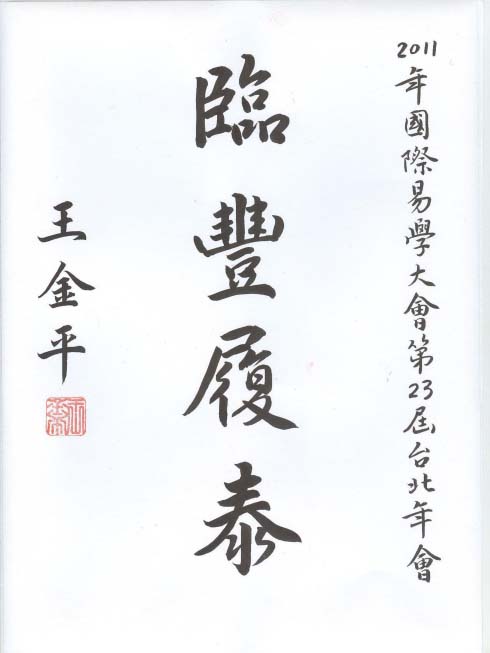 2011年國際易學大會第23屆台北年會
臨豐履泰
王金平